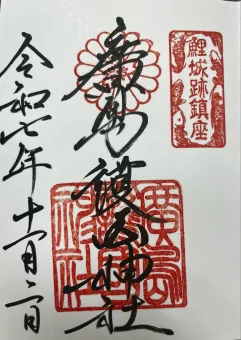 鯉城跡鎮座
廣島護国神社
廣島
護國
神社
令和七年十一月二日